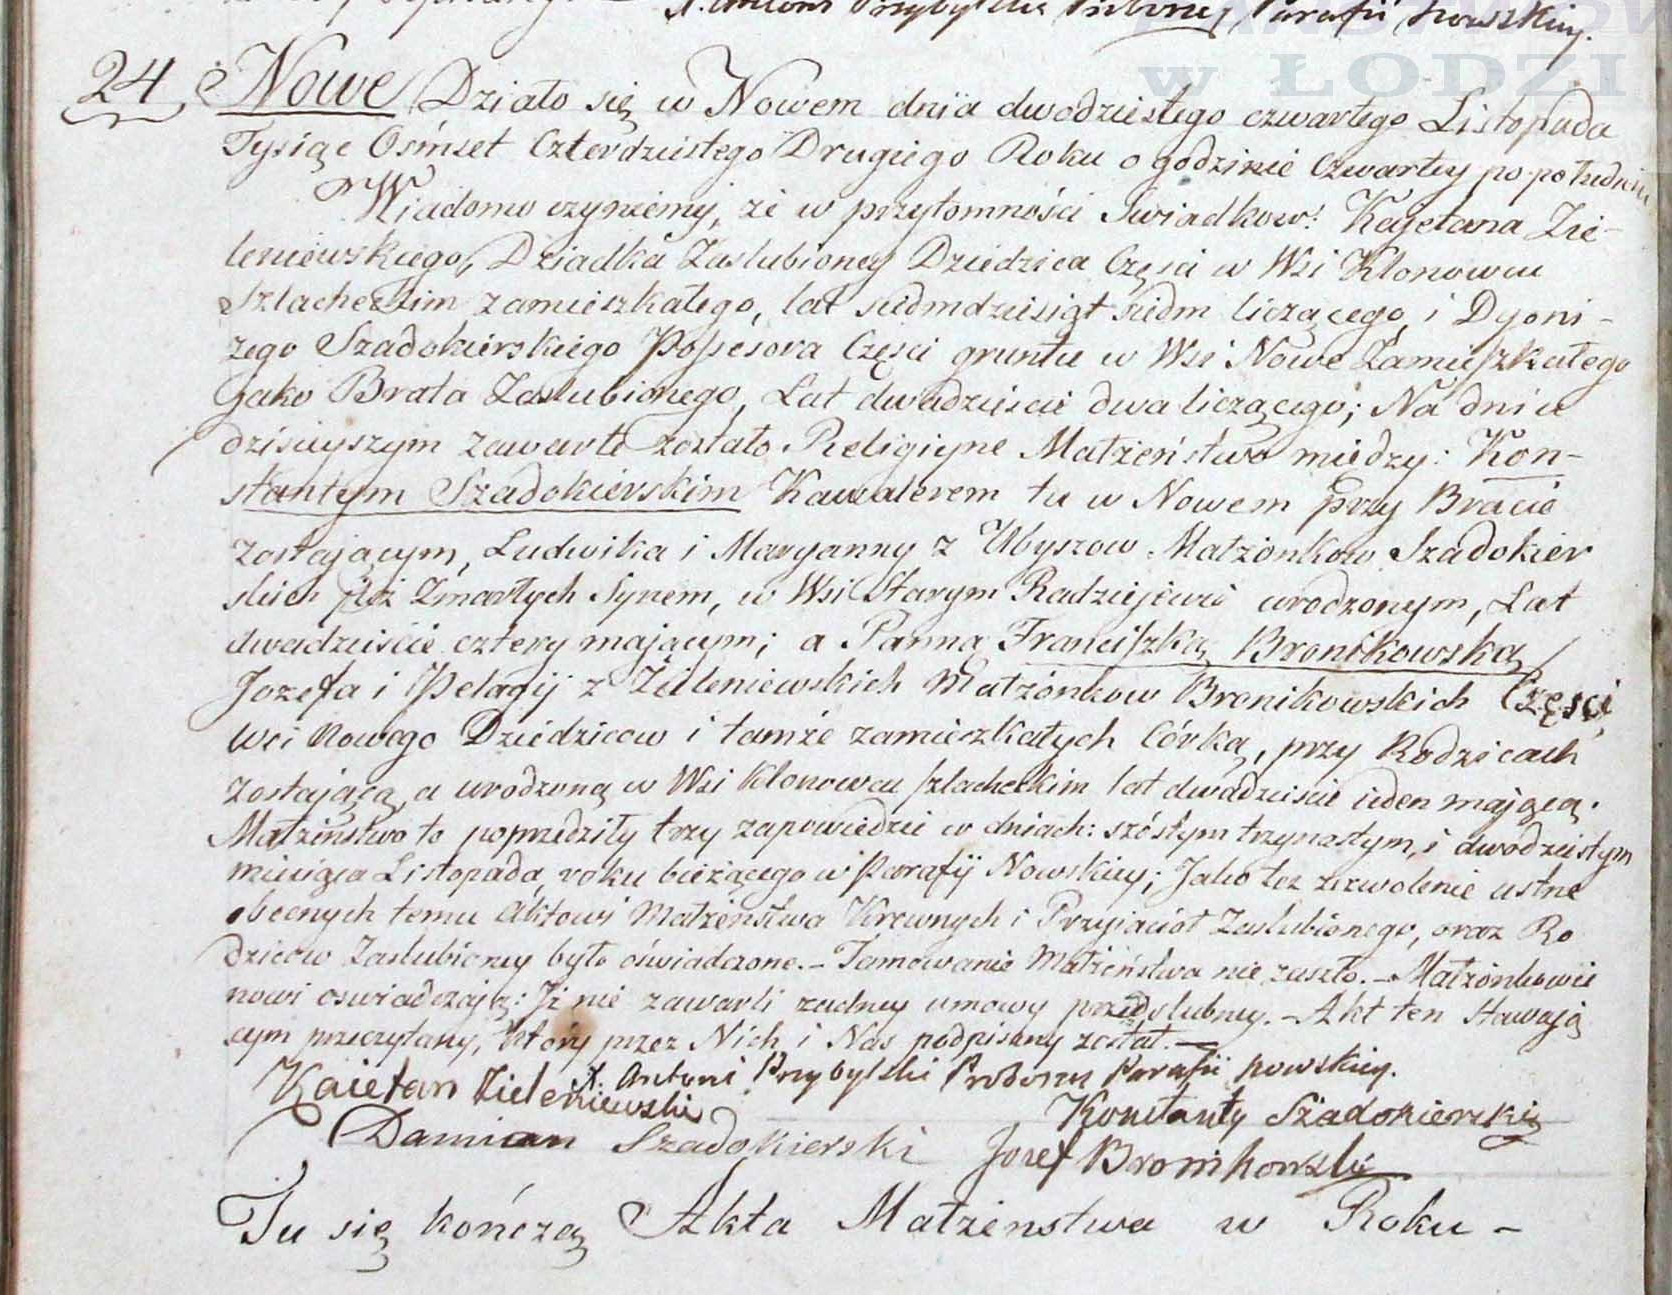 X. Antoni Przybylski Proboszcz Parafii Nowskiey.
w ŁODZI
24 Nowe Działo się w Nowem dnia dwódziestego czwartego Listopada
Tysiąc Ośmset Czterdziestego Drugiego Roku o godzinie Czwartey po południu
Wiadomo czyniemy, że w przytomności Świadków: Kajetana Zie-
leniewskiego, Dziadka Zaslubioney Dziedzica Części w Wsi Klonowcu
Szlacheckim zamieszkałego, lat siedmdziesiąt siedm liczącego, i Dyoni-
zego Szadokierskiego Possesora Części gruntu w Wsi Nowe Zamieszkałego
jako Brata Zaslubionego, Lat dwadzieścia dwa liczącego; Na dniu
dzisieyszym zawarte zostało Religiyne Małżeństwo między: Kon-
stantym Szadokierskim Kawalerem tu w Nowem przy Bracie
zostającym, Ludwika i Maryanny z Ubyszow Małżonków Szadokier
skich już Zmarłych Synem, w Wsi Starym Radziejewie urodzonym, Lat
dwadzieście cztery mającym; a Panną Franciszką Bronikowską
Jozefa i Pelagij z Zieleniewskich Małżonkow Bronikowskich Części
Wsi Nowego Dziedziców i tamże zamieszkałych Córką, przy Rodzicach
zostającą, a urodzoną w Wsi Klonowcu szlacheckim lat dwadzieście ieden mającą.
Małżeństwo to poprzedziły trzy zapowiedzie w dniach: szóstym trzynastym, i dwódziestym
miesiąca Listopada, roku bieżącego w Parafij Nowskiey; Jako też zezwolenie ustne
obecnych temu Aktowi Małżeństwa Krewnych i Przyjaciół Zaslubionego, oraz Ro
dziców Zaslubioney było oświadczone. - Tamowanie Małżeństwa nie zaszło. - Małżonkowie
nowi oswiadczają: Iż nie zawarli żadney umowy przedslubney. - Akt ten Stawają
cym przeczytany, który przez Nich i Nas podpisany został. -
X. Antoni Przybylski Proboszcz Parafii Nowskiey.
Kaietan Zieleniewski
Konstanty Szadokierski
Damian Szadokierski Jozef Bronikowski
Tu się kończą Akta Małżenstwa w Roku -